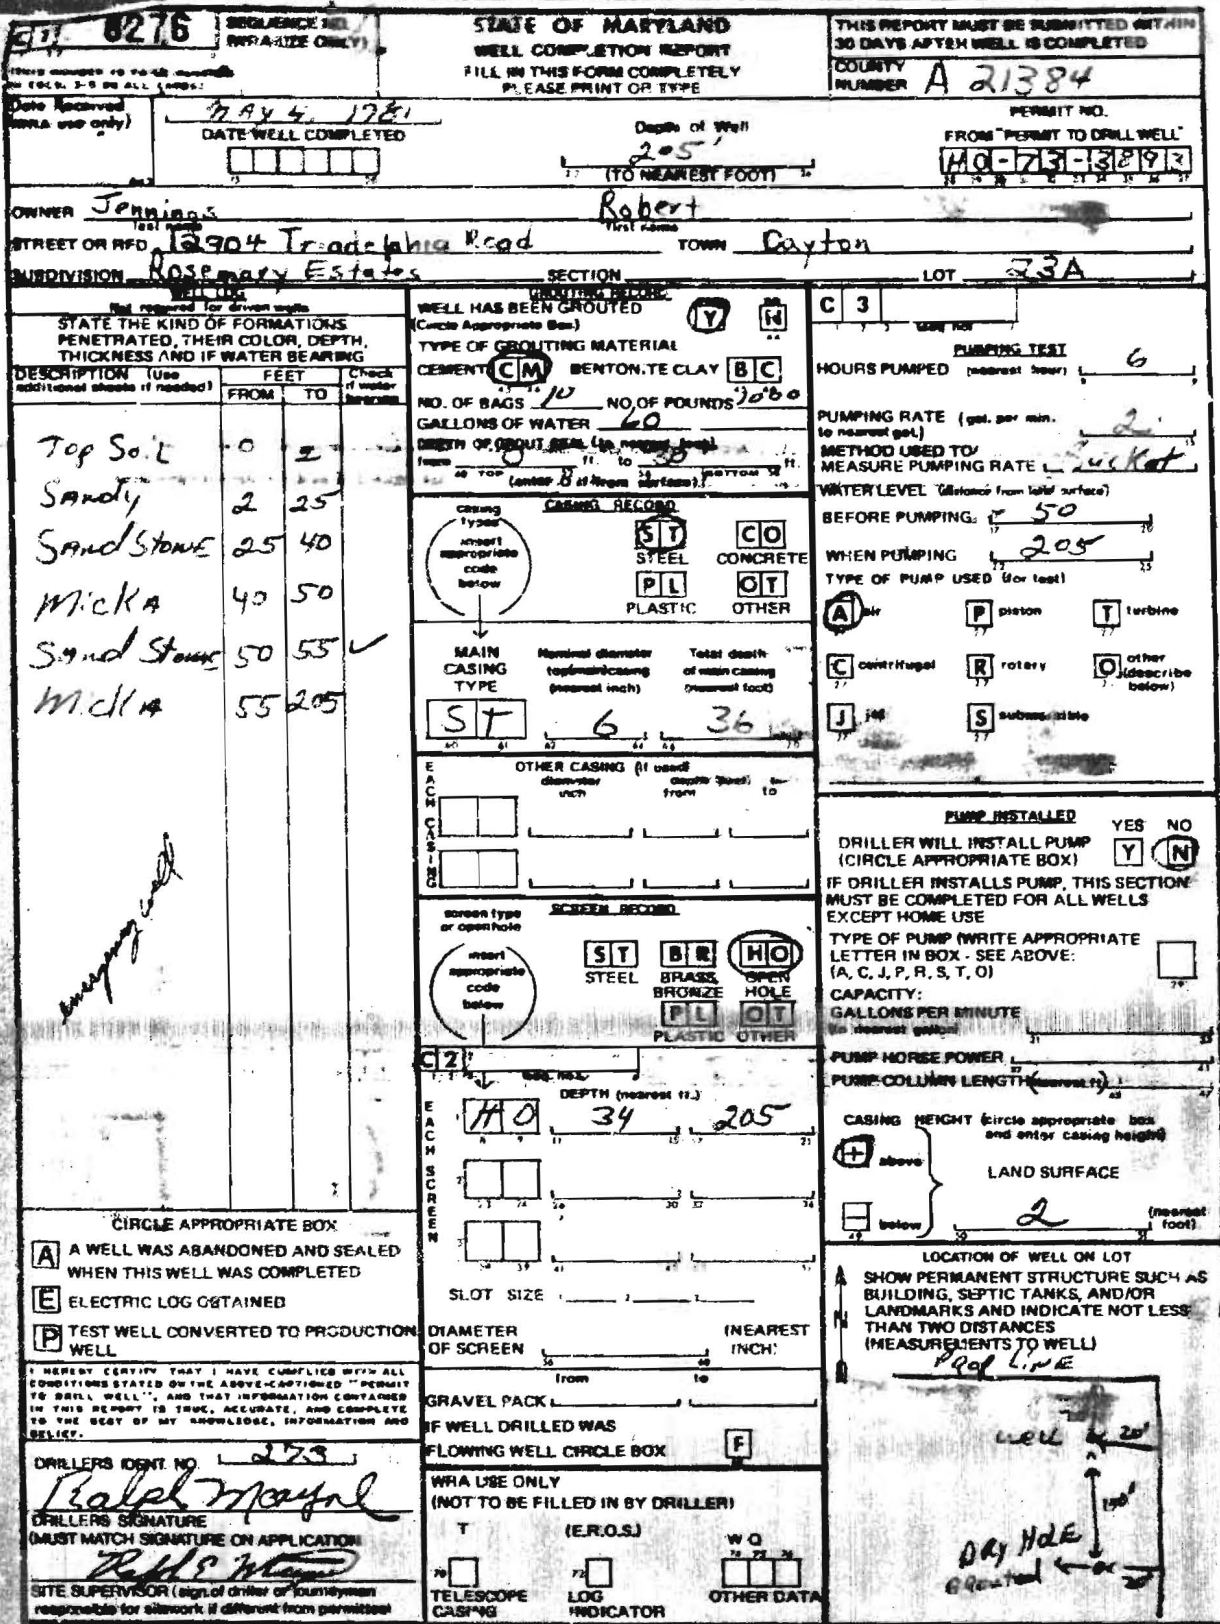 C 1 8276
SEQUENCE NO.
STATE OF MARYLAND
WELL COMPLETION REPORT
FILL IN THIS FORM COMPLETELY
PLEASE PRINT OR TYPE
THIS REPORT MUST BE SUBMITTED WITHIN
30 DAYS AFTER WELL IS COMPLETED
COUNTY
NUMBER A 21384
Date Received
MAY 4, 1981
DATE WELL COMPLETED
Depth of Well
205'
(TO NEAREST FOOT)
PERMIT NO.
FROM "PERMIT TO DRILL WELL"
HO-73-3893
OWNER Jennings Robert
last name first name
STREET OR RFD 12904 Triadelphia Road TOWN Dayton
SUBDIVISION Rosemary Estates SECTION LOT 23A
WELL LOG
Not required for driven wells
STATE THE KIND OF FORMATIONS
PENETRATED, THEIR COLOR, DEPTH,
THICKNESS AND IF WATER BEARING
DESCRIPTION (Use
additional sheets if needed)
FEET
FROM TO
Check
if water
bearing
Top Soil 0 2
SANdy 2 25
SANdStoNE 25 40
MickA 40 50
Sand Stone 50 55 ✓
MickA 55 205
emergency well
CIRCLE APPROPRIATE BOX
A A WELL WAS ABANDONED AND SEALED
WHEN THIS WELL WAS COMPLETED
E ELECTRIC LOG OBTAINED
P TEST WELL CONVERTED TO PRODUCTION
WELL
I HEREBY CERTIFY THAT I HAVE COMPLIED WITH ALL
CONDITIONS STATED ON THE ABOVE-CAPTIONED "PERMIT
TO DRILL WELL", AND THAT INFORMATION CONTAINED
IN THIS REPORT IS TRUE, ACCURATE, AND COMPLETE
TO THE BEST OF MY KNOWLEDGE, INFORMATION AND
BELIEF.
DRILLERS IDENT. NO. 273
DRILLERS SIGNATURE
(MUST MATCH SIGNATURE ON APPLICATION
SITE SUPERVISOR (sign. of driller or journeyman
responsible for sitework if different from permittee)
GROUTING RECORD
WELL HAS BEEN GROUTED Y N
(Circle Appropriate Box)
TYPE OF GROUTING MATERIAL
CEMENT CM BENTONITE CLAY BC
NO. OF BAGS 10 NO. OF POUNDS
GALLONS OF WATER 60
DEPTH OF GROUT SEAL (to nearest foot)
from 0 ft. to 30 ft.
TOP BOTTOM
(enter 0 if from surface)
CASING RECORD
casing
types
insert
appropriate
code
below
ST STEEL CO CONCRETE
PL PLASTIC OT OTHER
MAIN
CASING
TYPE
Nominal diameter
top(main)casing
(nearest inch)
Total depth
of main casing
(nearest foot)
ST 6 36
EACH CASING
OTHER CASING (if used)
diameter
inch
depth (feet)
from to
SCREEN RECORD
screen type
or open hole
insert
appropriate
code
below
ST STEEL BR BRASS BRONZE HO OPEN HOLE
PL PLASTIC OT OTHER
C 2
DEPTH (nearest ft.)
EACH SCREEN
HO 34 205
SLOT SIZE 1 2 3
DIAMETER
OF SCREEN
(NEAREST
INCH)
from to
GRAVEL PACK
IF WELL DRILLED WAS
FLOWING WELL CIRCLE BOX F
WRA USE ONLY
(NOT TO BE FILLED IN BY DRILLER)
T (E.R.O.S.) W Q
TELESCOPE
CASING
LOG
INDICATOR
OTHER DATA
C 3
PUMPING TEST
HOURS PUMPED (nearest hour) 6
PUMPING RATE (gal. per min.
to nearest gal.) 2
METHOD USED TO
MEASURE PUMPING RATE Bucket
WATER LEVEL (distance from land surface)
BEFORE PUMPING 50
WHEN PUMPING 205
TYPE OF PUMP USED (for test)
A air P piston T turbine
C centrifugal R rotary O other
(describe
below)
J jet S submersible
PUMP INSTALLED
YES NO
DRILLER WILL INSTALL PUMP Y N
(CIRCLE APPROPRIATE BOX)
IF DRILLER INSTALLS PUMP, THIS SECTION
MUST BE COMPLETED FOR ALL WELLS
EXCEPT HOME USE
TYPE OF PUMP (WRITE APPROPRIATE
LETTER IN BOX - SEE ABOVE:
(A, C, J, P, R, S, T, O)
CAPACITY:
GALLONS PER MINUTE
(to nearest gallon)
PUMP HORSE POWER
PUMP COLUMN LENGTH (nearest ft)
CASING HEIGHT (circle appropriate box
and enter casing height)
+ above
LAND SURFACE
- below 2 (nearest
foot)
LOCATION OF WELL ON LOT
SHOW PERMANENT STRUCTURE SUCH AS
BUILDING, SEPTIC TANKS, AND/OR
LANDMARKS AND INDICATE NOT LESS
THAN TWO DISTANCES
(MEASUREMENTS TO WELL)
N
Prop LiNE
well 20'
150'
DRY HOLE
Grouted 20'